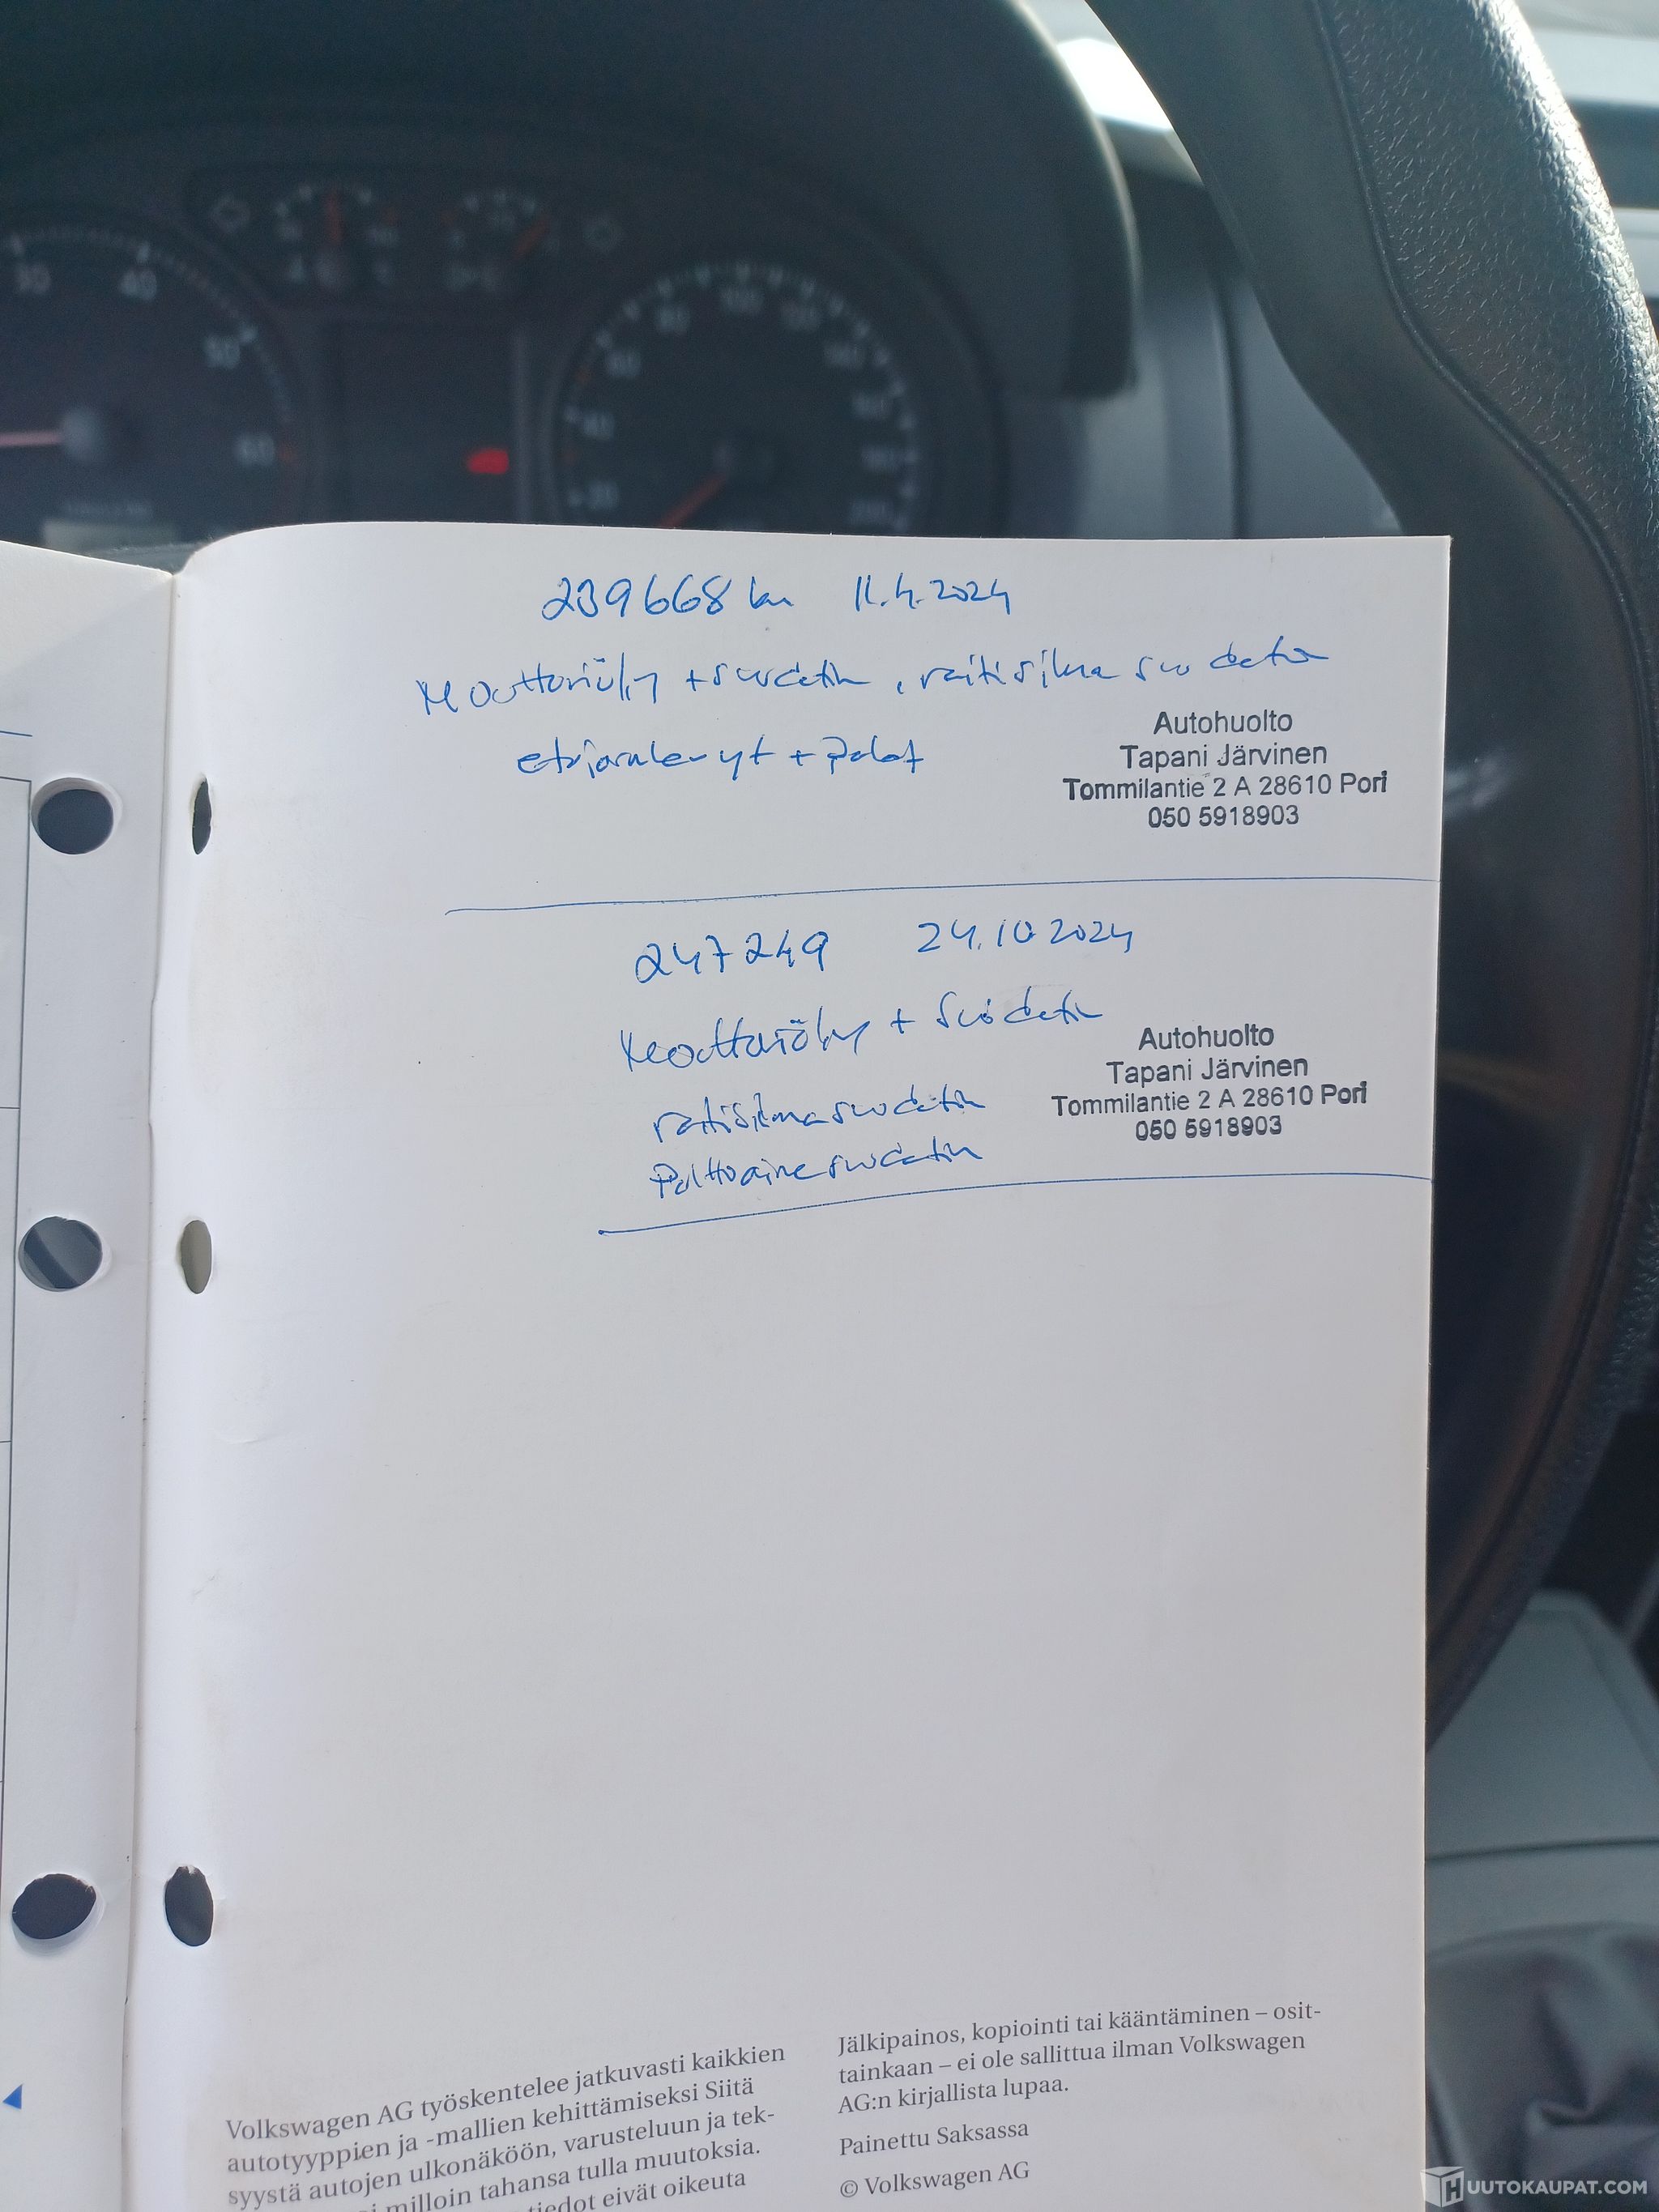 239668 km 11.4.2024
Moottoriöljy + suodatin, raitisilma suodatin
etujarrulevyt + palat
Autohuolto
Tapani Järvinen
Tommilantie 2 A 28610 Pori
050 5918903
247249 24.10.2024
Moottoriöljy + suodatin
raitisilmasuodatin
Polttoainesuodatin
Autohuolto
Tapani Järvinen
Tommilantie 2 A 28610 Pori
050 5918903
Volkswagen AG työskentelee jatkuvasti kaikkien
autotyyppien ja -mallien kehittämiseksi Siitä
syystä autojen ulkonäköön, varusteluun ja tek-
milloin tahansa tulla muutoksia.
tiedot eivät oikeuta
Jälkipainos, kopiointi tai kääntäminen – osit-
tainkaan – ei ole sallittua ilman Volkswagen
AG:n kirjallista lupaa.
Painettu Saksassa
© Volkswagen AG
30 40 50 60
20 40 60 80 100 120 140 160 180 200
HUUTOKAUPAT.COM